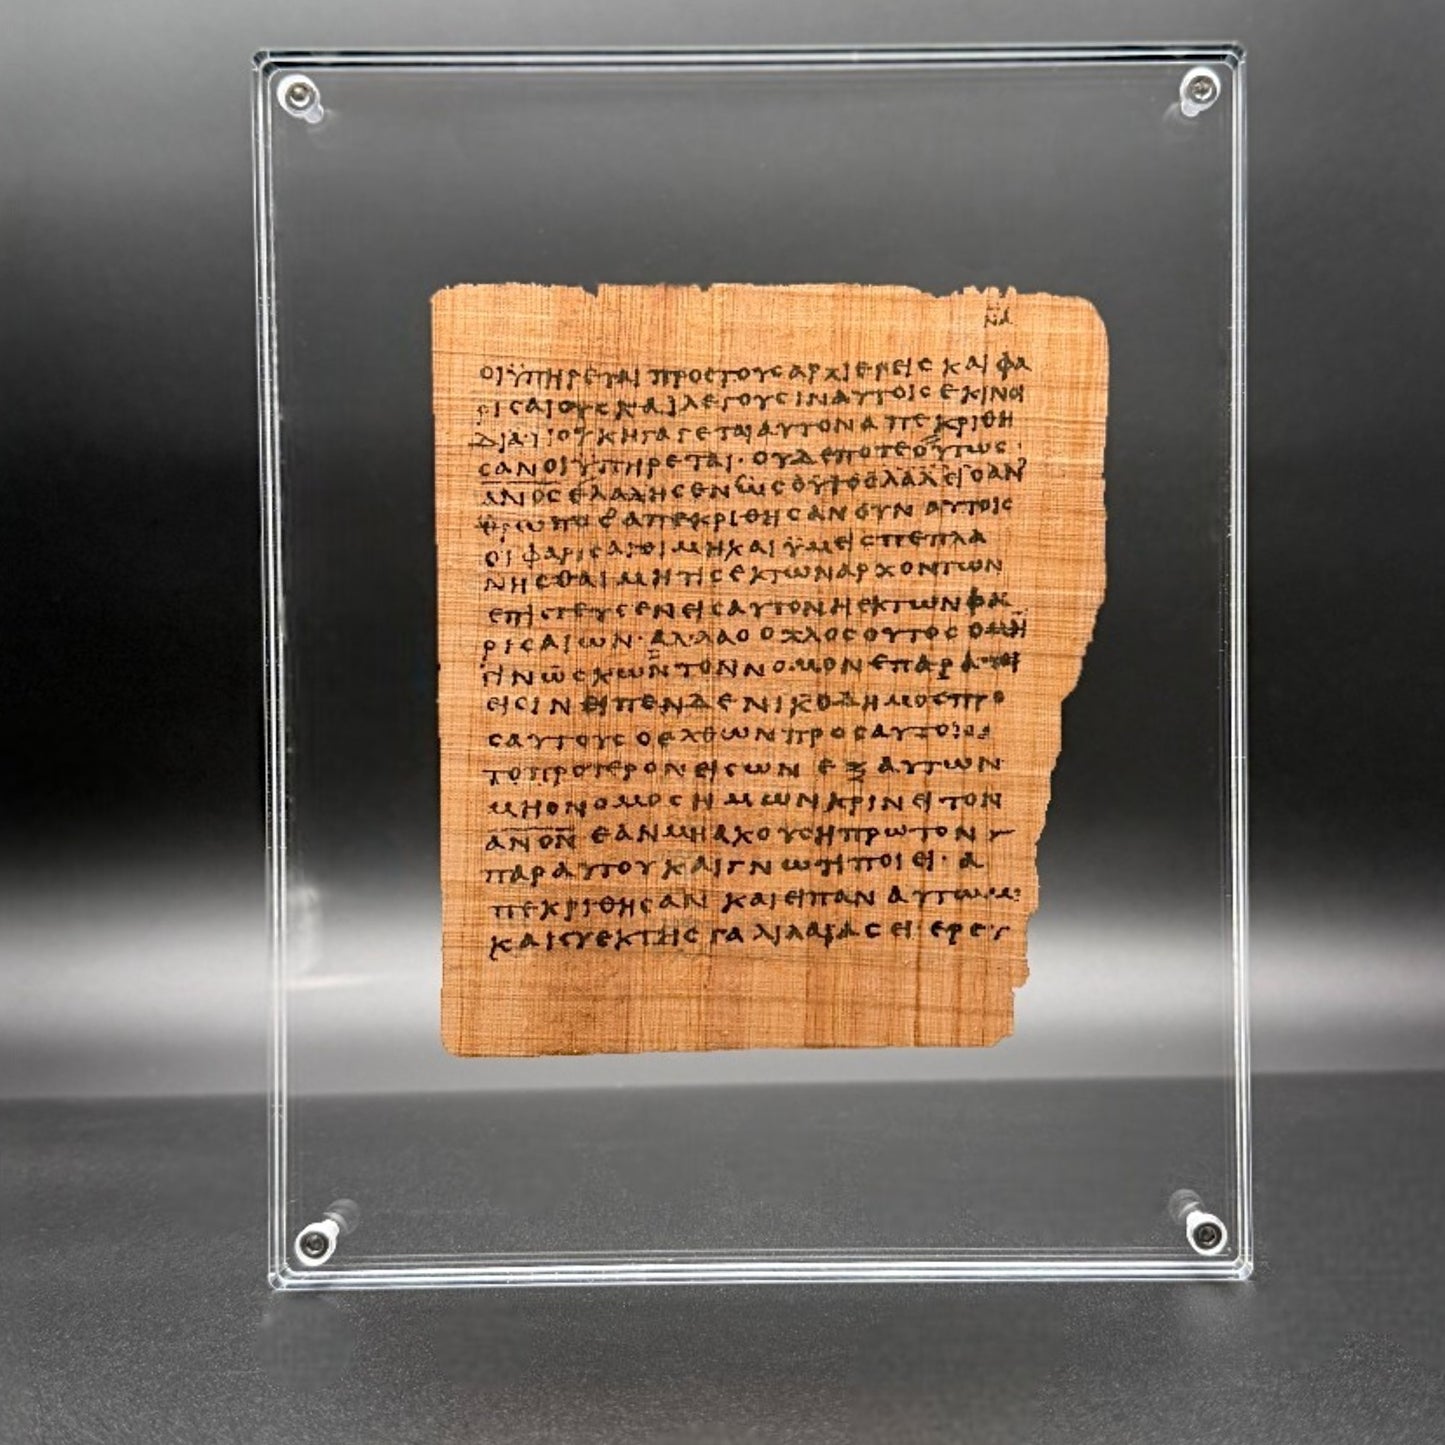 ΝΑ
ΟΙΫΠΗΡΕΤΑΙ ΠΡΟϹΤΟΥϹΑΡΧΙΕΡΕΙϹ ΚΑΙ ΦΑ
ΡΙϹΑΙΟΥϹΚΑΙΛΕΓΟΥϹΙΝΑΥΤΟΙϹ ΕΚΙΝΟΙ
ΔΙΑΤΙΟΥΚΗΓΑΓΕΤΑΙΑΥΤΟΝΑΠΕΚΡΙΘΗ
ϹΑΝΟΙΫΠΗΡΕΤΑΙ· ΟΥΔΕΠΟΤΕΟΥΤΩϹ
ΑΝΟϹΕΛΑΛΗϹΕΝΩϹΟΥΤΟϹΛΑΛΕΙΟΑΝ
ΘΡΩΠΟϹΑΠΕΚΡΙΘΗϹΑΝΟΥΝ ΑΥΤΟΙϹ
ΟΙΦΑΡΙϹΑΙΟΙΜΗΚΑΙΫΜΕΙϹΠΕΠΛΑ
ΝΗϹΘΑΙΜΗΤΙϹΕΚΤΩΝΑΡΧΟΝΤΩΝ
ΕΠΙϹΤΕΥϹΕΝΕΙϹΑΥΤΟΝΗΕΚΤΩΝΦΑ
ΡΙϹΑΙΩΝ·ΑΛΛΑΟΟΧΛΟϹΟΥΤΟϹΟΜΗ
ΓΙΝΩϹΚΩΝΤΟΝΝΟΜΟΝΕΠΑΡΑΤΟΙ
ΕΙϹΙΝΕΙΠΕΝΔΕΝΙΚΟΔΗΜΟϹΠΡΟ
ϹΑΥΤΟΥϹΟΕΛΘΩΝΠΡΟϹΑΥΤΟΝ
ΤΟΠΡΟΤΕΡΟΝΕΙϹΩΝ ΕΞ ΑΥΤΩΝ
ΜΗΟΝΟΜΟϹΗΜΩΝΚΡΙΝΕΙΤΟΝ
ΑΝΟΝ ΕΑΝΜΗΑΚΟΥϹΗΠΡΩΤΟΝ
ΠΑΡΑΥΤΟΥΚΑΙΓΝΩΤΙΠΟΙΕΙ· Α
ΠΕΚΡΙΘΗϹΑΝ ΚΑΙΕΙΠΑΝ ΑΥΤΩΜΗ
ΚΑΙϹΥΕΚΤΗϹ ΓΑΛΙΛΑΙΑϹ ΕΙ ΕΡΕΥ